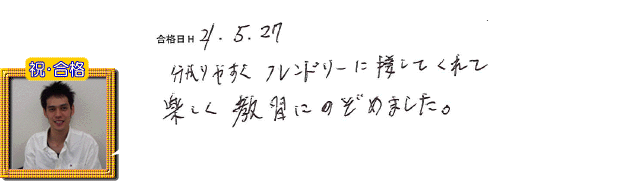 祝・合格
合格日 H 21.5.27
分かりやすく フレンドリーに接してくれて
楽しく教習にのぞめました。